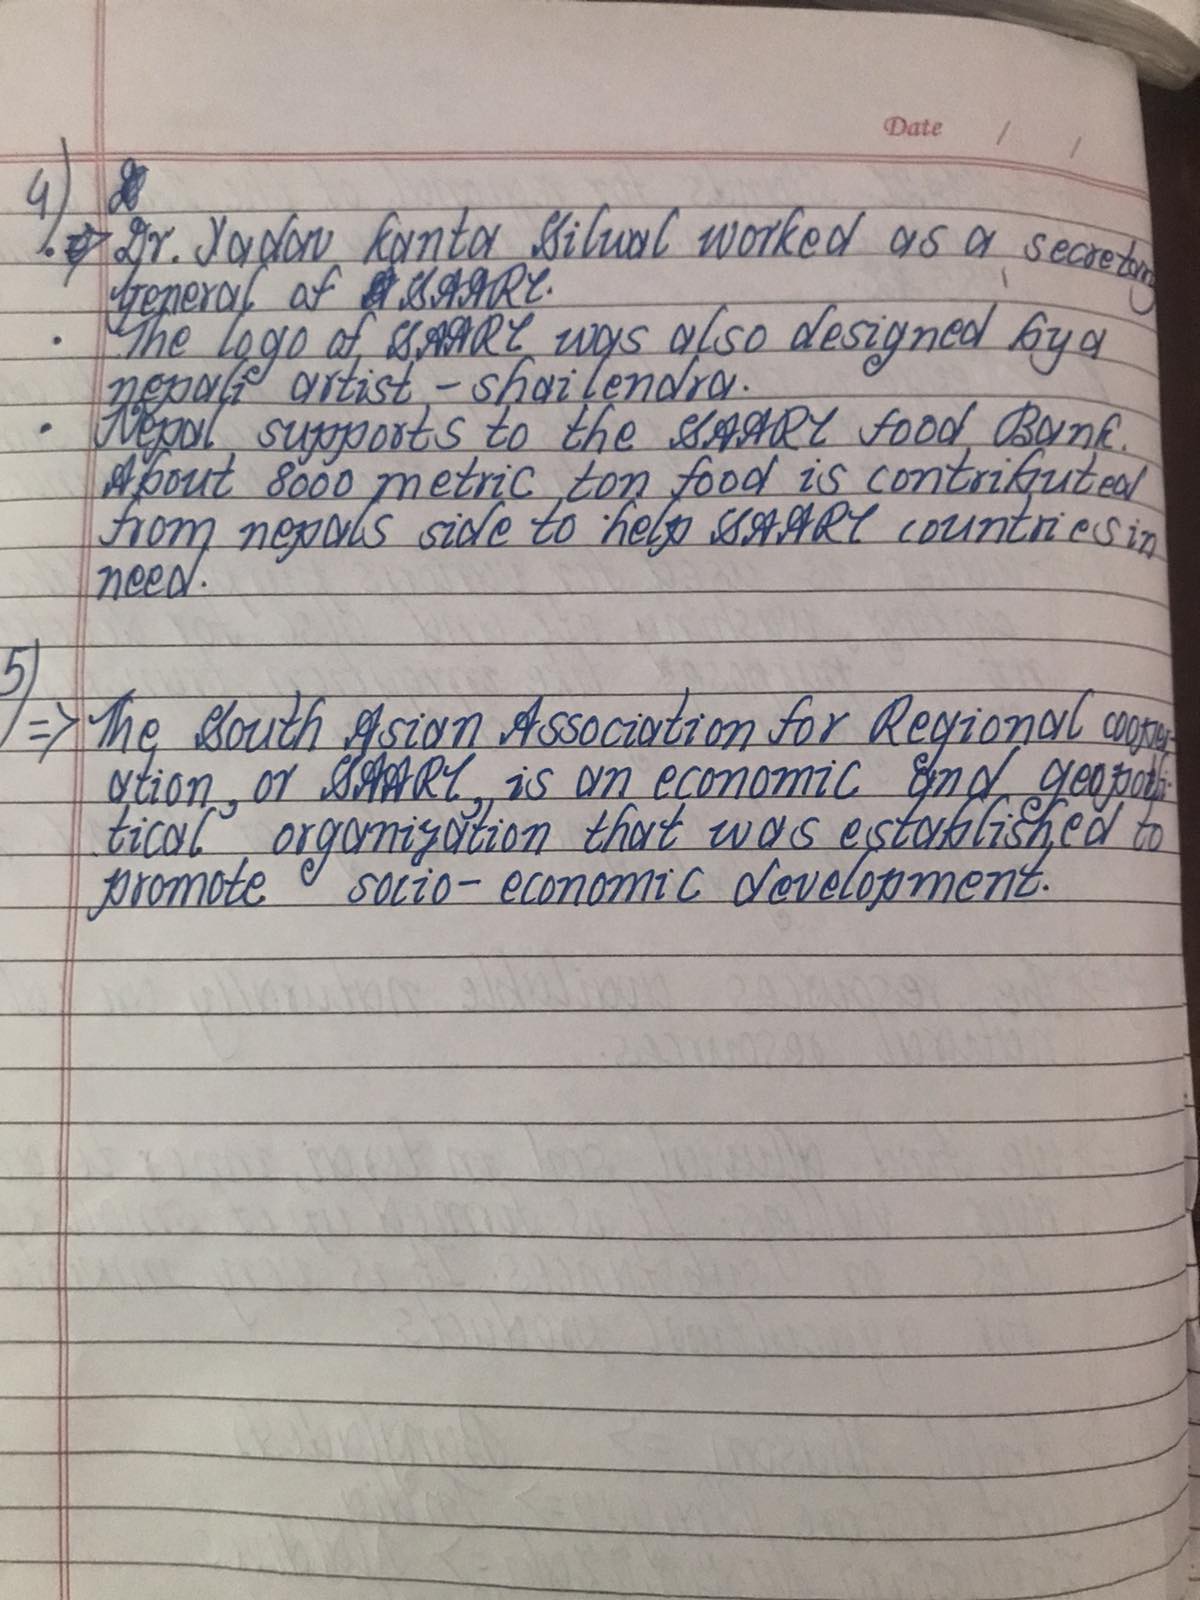 Date / /
4)
=> Dr. Yadav Kanta Silwal worked as a secretary
general of SAARC.
• The logo of SAARC was also designed by a
nepali artist - shailendra.
• Nepal supports to the SAARC food Bank.
About 8000 metric ton food is contributed
from nepals side to help SAARC countries in
need.
5)
=> The South Asian Association for Regional cooper-
ation, or SAARC, is an economic and geopoli-
tical organization that was established to
promote socio-economic development.